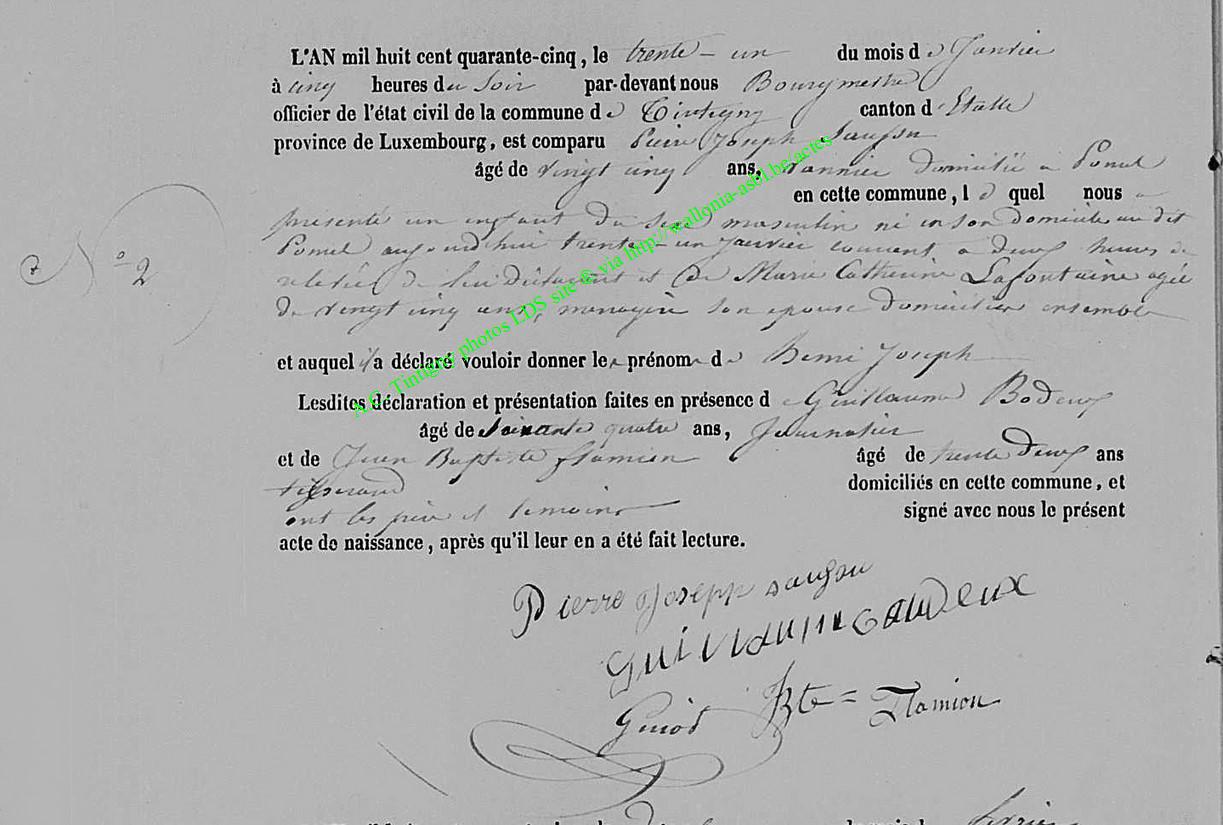 L'AN mil huit cent quarante-cinq, le trente-un du mois de Janvier
à cinq heures du soir par-devant nous Bourgmestre
officier de l'état civil de la commune de Tintigny canton d'Etalle
province de Luxembourg, est comparu Pierre Joseph
âgé de vingt cinq ans, domicilié a Ponsel
en cette commune, le quel nous a
présenté un enfant du sexe masculin né en son domicile au dit
aujourd'hui trente-un janvier courant a deux heures de
relevée de lui déclarant et de Marie Catherine Lafontaine agée
de vingt cinq ans, menagère son epouse domiciliés ensemble
N° 2
et auquel il a déclaré vouloir donner les prénoms de Joseph
Lesdites déclaration et présentation faites en présence de Guillaume Bodeux
âgé de soixante quatre ans, Journalier
et de Jean Baptiste flamion âgé de trente deux ans
tisserand domiciliés en cette commune, et
ont les père et temoins signé avec nous le présent
acte de naissance, après qu'il leur en a été fait lecture.
Pierre Joseph
guillaume
Jbte = Flamion
A.C. Tintigny photos LDS site © via http://wallonia-asbl.be/actes